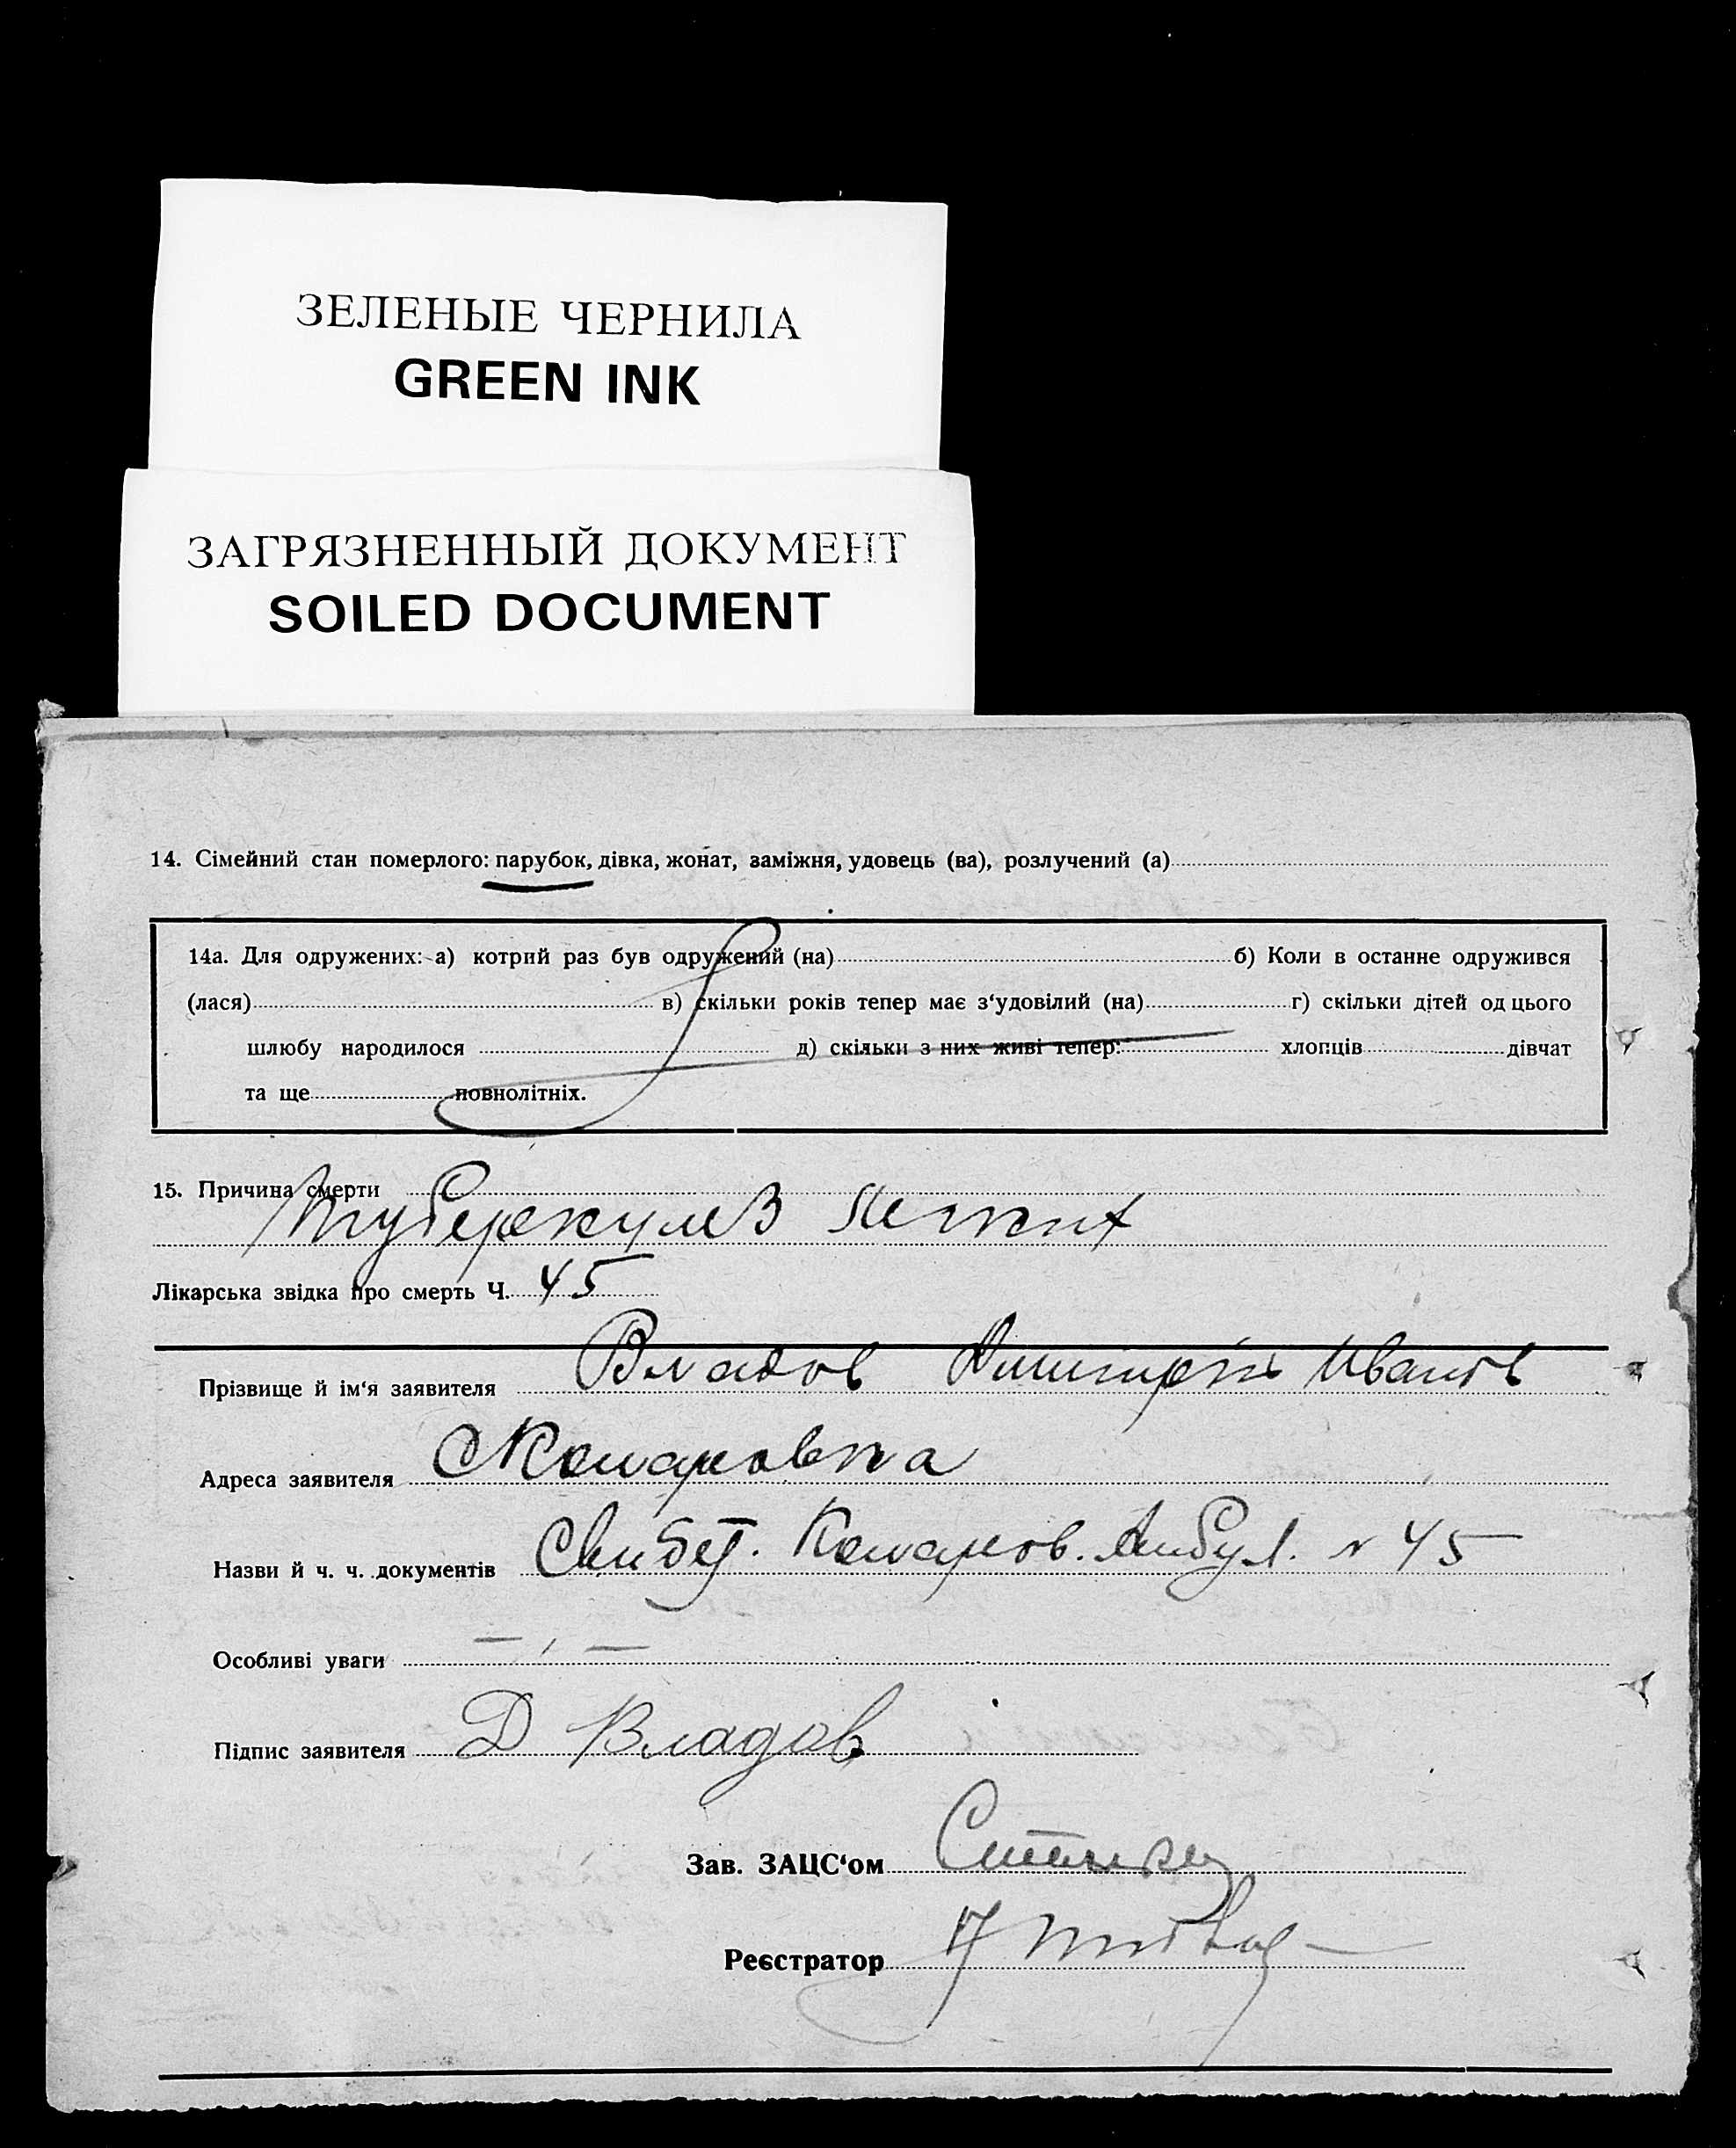 ЗЕЛЕНЫЕ ЧЕРНИЛА
GREEN INK
ЗАГРЯЗНЕННЫЙ ДОКУМЕНТ
SOILED DOCUMENT
14. Сімейний стан померлого: парубок, дівка, жонат, заміжня, удовець (ва), розлучений (а)
14а. Для одружених: а) котрий раз був одружений (на) б) Коли в останне одружився
(лася) в) скільки років тепер має з‘удовілий (на) г) скільки дітей од цього
шлюбу народилося д) скільки з них живі тепер: хлопців дівчат
та ще повнолітніх.
15. Причина смерти
Туберкулез легких
Лікарська звідка про смерть Ч. 45
Прізвище й ім‘я заявителя Владов Дмитрий Иванов
Адреса заявителя с Комаровка
Назви й ч. ч. документів Комаров. Амбул. № 45
Особливі уваги — , —
Підпис заявителя Д Владов
Зав. ЗАЦС‘ом
Реєстратор